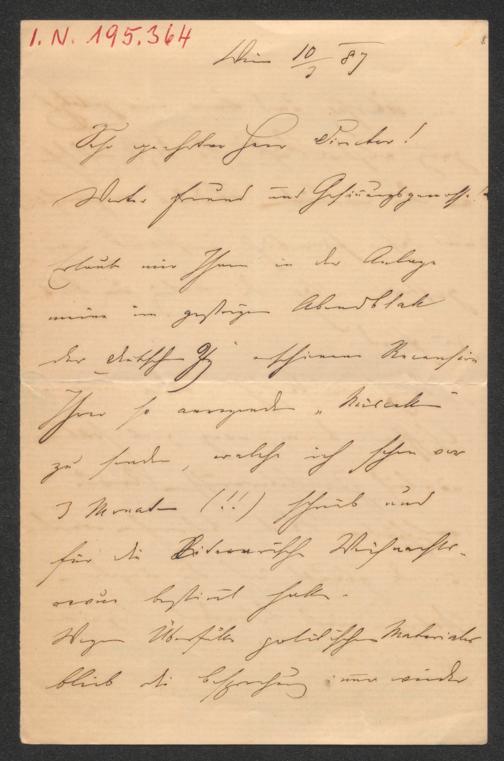 I. N. 195.364
Wien 10/3 87
Sehr geehrter Herr Director!
Werter Freund und Gesinnungsgenosse!
Erlaubt mir Ihnen in der Anlage
meine im gestrigen Abendblatt
der deutsch Ztg erschienene Recension
Ihrer so anregenden „
zu senden, welche ich schon vor
3 Monaten (!!) schrieb und
für die Weihnachts-
revue bestimmt hatte.
Wegen Überfülle politischen Materiales
blieb die Besprechung immer wieder